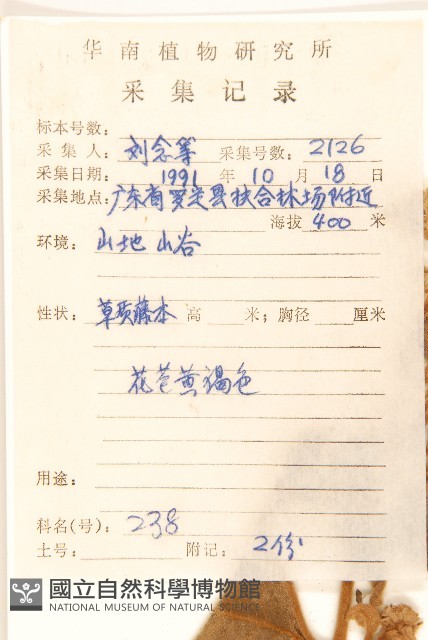 华南植物研究所
采集记录
标本号数：
采集人：刘念等 采集号数：2126
采集日期：1991年10月18日
采集地点：广东省罗定县扶合林场附近
海拔 400 米
环境：山地 山谷
性状：草质藤本 高 米；胸径 厘米
花苞黄褐色
用途：
科名(号)：238
土号： 附记：2份
國立自然科學博物館
NATIONAL MUSEUM OF NATURAL SCIENCE